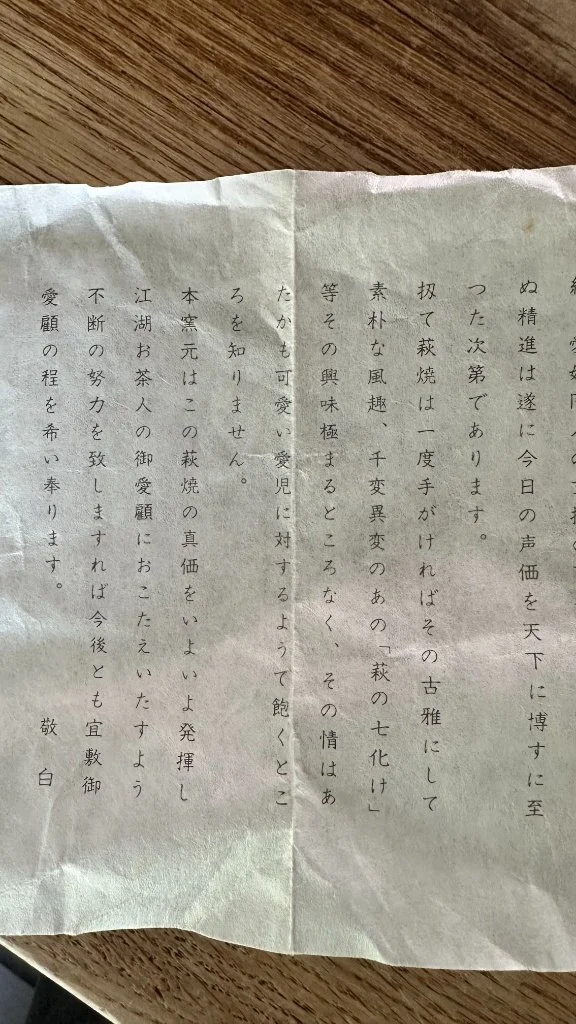 ぬ精進は遂に今日の声価を天下に博すに至
つた次第であります。
扨て萩焼は一度手がければその古雅にして
素朴な風趣、千変異変のあの「萩の七化け」
等その興味極まるところなく、その情はあ
たかも可愛い愛児に対するようて飽くとこ
ろを知りません。
本窯元はこの萩焼の真価をいよいよ発揮し
江湖お茶人の御愛顧におこたえいたすよう
不断の努力を致しますれば今後とも宜敷御
愛顧の程を希い奉ります。
敬白